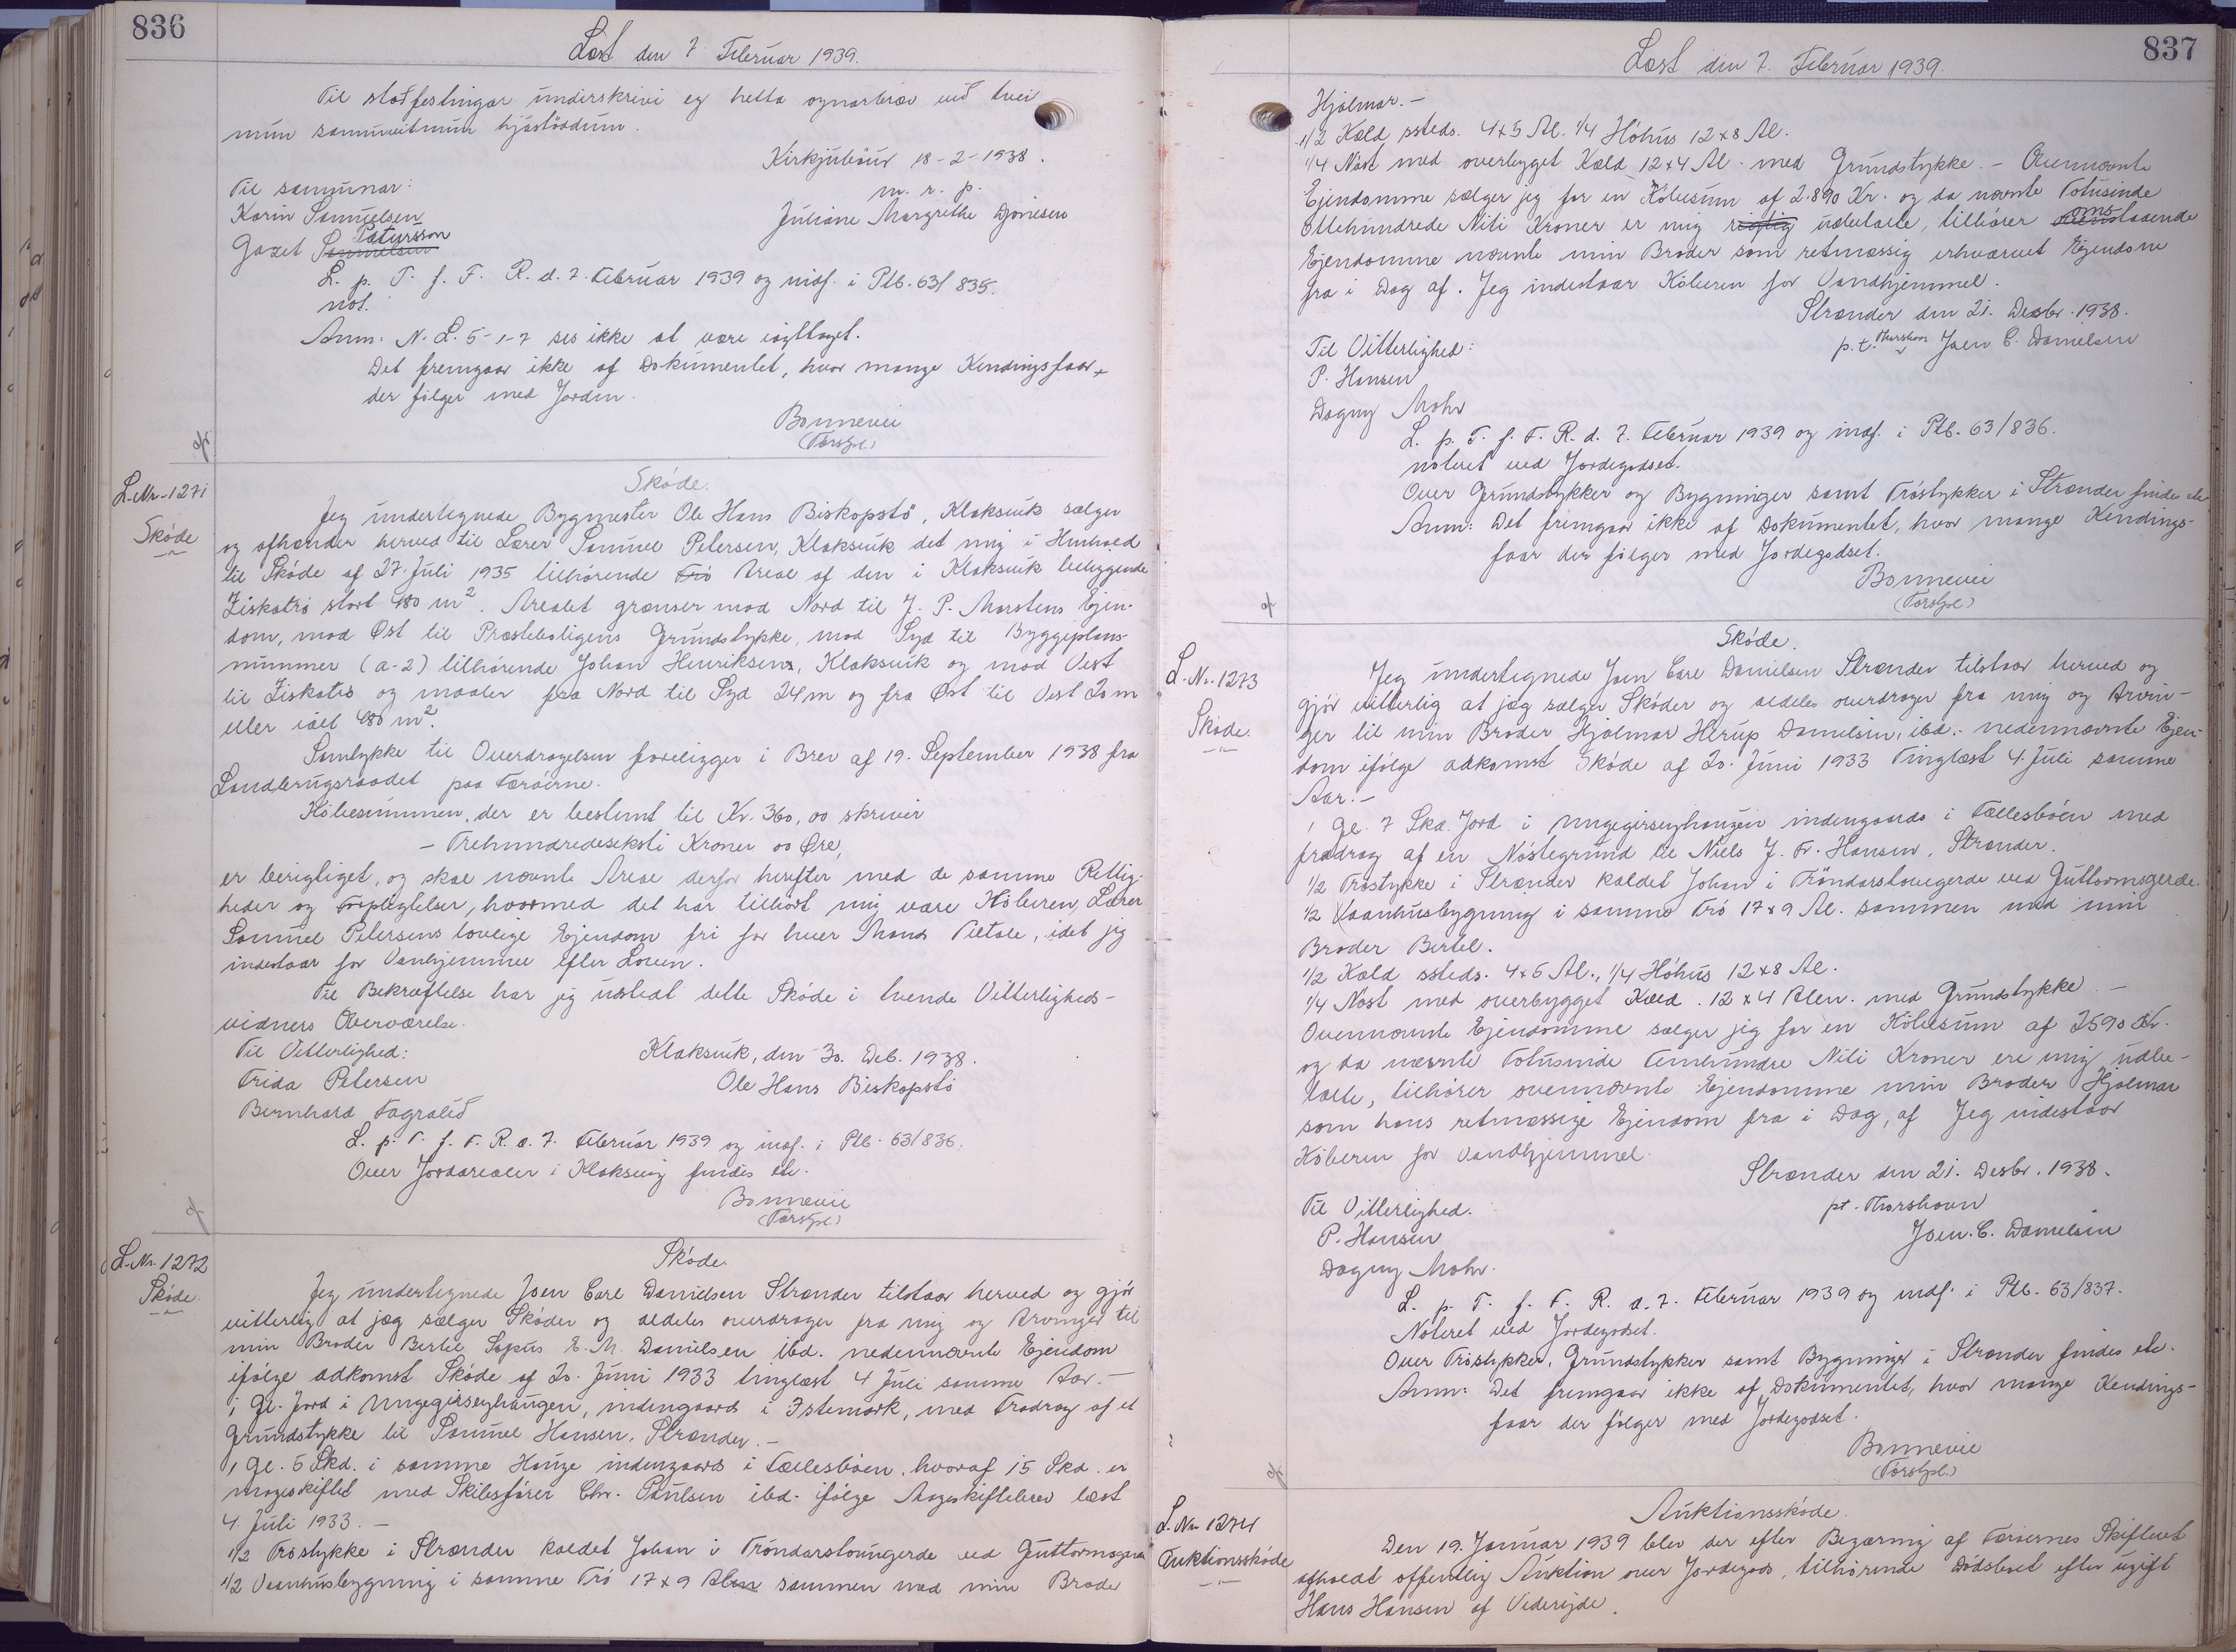 836
Læst den 7. Februar 1939.
Til staðfestingar underskrivi eg hetta ognarbræv við tvei
mun samuvitmun hjástöddum.
Kirkjubøur 18-2-1938.
Til samunar:
m. r. p.
Karin Samuelsen
Juliane Margrethe Djonesen
Gazet Samuelsen Patursson
L. p. T. f. F. R. d. 7. Februar 1939 og indf. i Ptb. 63/835.
not.
Anm. N. L. 5-1-7 ses ikke at være iagttaget.
Det fremgaar ikke af Dokumentet, hvor mange Kendingsfaar,
der følger med Jorden.
Bonnevie
(Forstpl.)
L.Nr. 1271
Skøde
Skøde.
Jeg undertegnede Bygmester Ole Hans Biskopstø, Klaksvik sælger
og afhænder herved til Lærer Samuel Petersen, Klaksvik det mig i Henhold
til Skøde af 27. Juli 1935 tilhørende Trø Areal af den i Klaksvik beliggende
Ziskatrø stort 480 m². Arealet grænser mod Nord til J. P. Marstens Ejen-
dom, mod Øst til Præsteboligens Grundstykke, mod Syd til Byggeplans-
nummer (a-2) tilhørende Johan Henriksen, Klaksvik og mod Vest
til Ziskatrø og maaler fra Nord til Syd 24 m og fra Øst til Vest 20 m
eller ialt 480 m².
Samtykke til Overdragelsen foreligger i Brev af 19. September 1938 fra
Landbrugsraadet paa Færøerne.
Købesummen, der er bestemt til Kr. 360,00 skriver
- Trehundredeseksti Kroner 00 Øre,
er berigtiget, og skal nævnte Areal derfor herefter med de samme Rettig-
heder og Forpligtelser, hvormed det har tilhørt mig være Køberen, Lærer
Samuel Petersens lovlige Ejendom fri for hver Mands Tiltale, idet jeg
indestaar for Vanhjemmel efter Loven.
Til Bekræftelse har jeg ustedt dette Skøde i tvende Vitterligheds-
vidners Overværelse.
Til Vitterlighed:
Klaksvik, den 30. Deb. 1938.
Frida Petersen
Ole Hans Biskopstø
Bernhard Fagralid
L. p. T. f. F. R. d. 7. Februar 1939 og indf. i Ptb. 63/836.
Over Jordarealer i Klaksvig findes etc.
Bonnevie
(Forstpl.)
L.Nr. 1272
Skøde
Skøde.
Jeg undertegnede Joen Carl Danielsen Strænder tilstaar herved og gjør
vitterlig at jeg sælger Skøder og aldeles overdrager fra mig og Arvinger til
min Broder Bertel Sopus E. M. Danielsen ibd. nedennævnte Ejendom
ifølge adkomst Skøde af 20. Juni 1933 tinglæst 4 Juli samme Aar.-
1 Gl. Jord i Mugegirseyhaugen, indengaards i Istemørk, med Fradrag af et
Grundstykke til Samuel Hansen, Strænder.-
1 Gl. 5 Skd. i samme Hauge indengaards i Fællesbøen, hvoraf 15 Skd. er
mageskiftet med Skibsfører Chr. Poulsen ibd. ifølge Mageskiftebrev læst
4. Juli 1933.-
1/2 Trøstykke i Strænder kaldet Johan i Tröndarstovugerde ved Guttormsgerde
1/2 Vaanhusbygning i samme Trø 17x9 Alen sammen med min Broder
837
Læst den 7. Februar 1939.
Hjalmar.-
1/2 Kæld ssteds. 4x5 Al. 1/4 Høhus 12x8 Al.
1/4 Nøst med overbygget Kæld 12x4 Al. med Grundstykke.- Ovennævnte
Ejendomme sælger jeg for en Købesum af 2.890 Kr. og da nævnte Totusinde
Ottehundrede Niti Kroner er mig rigtig udbetalte, tilhører omstaaende
Ejendomme nævnte min Broder som retmæssig erhvervet Ejendom
fra i Dag af. Jeg indestaar Köberen for Vandhjemmel.
Strænder den 21. Desbr. 1938.
Til Vitterlighed:
p. t. Thorshavn Joen C. Danielsen
P. Hansen
Dagny Mohr
L. p. T. f. F. R. d. 7. Februar 1939 og indf. i Ptb. 63/836.
noteret ved Jordegodset.
Over Grundstykker og Bygninger samt Trøstykker i Strænder findes etc
Anm: Det fremgaar ikke af Dokumentet, hvor mange Kendings-
faar der følger med Jordegodset.
Bonnevie
(Forstpl.)
L. Nr. 1273
Skøde.
Skøde.
Jeg undertegnede Joen Carl Danielsen Strænder tilstaar herved og
gjør vitterlig at jeg sælger Skøder og aldeles overdrager fra mig og Arvin-
ger til min Broder Hjalmar Herup Danielsen, ibd.- nedennævnte Ejen-
dom ifølge adkomst Skøde af 20. Juni 1933 Tinglæst 4. Juli samme
Aar.-
1 Gl. 7 Skd. Jord i Mugegirseyhaugen indengaards i Fællesbøen med
fradrag af en Nøstegrund til Niels J. Fr. Hansen, Strænder.
1/2 Trøstykke i Strænder kaldet Johan i Tröndarstovugerde ved Guttormsgerde.
1/2 Vaanhusbygning i samme Trø 17x9 Al. sammen med min
Broder Bertel.
1/2 Kæld ssteds. 4x5 Al., 1/4 Høhus 12x8 Al.
1/4 Nøst med overbygget Kæld. 12x4 Alen. med Grundstykke.-
Ovennævnte Ejendomme sælger jeg for en Købesum af 2590 Kr.
og da nævnte Totusinde Femhundre Niti Kroner ere mig udbe-
talte, tilhører ovennævnte Ejendomme min Broder Hjalmar
som hans retmæssige Ejendom fra i Dag, af Jeg indestaar
Köberen for Vandhjemmel.
Strænder den 21. Desbr. 1938.
Til Vitterlighed.
pt. Thorshavn
P. Hansen
Joen. C. Danielsen
Dagny Mohr.
L. p. T. f. F. R. d. 7. Februar 1939 og indf. i Ptb. 63/837.
Noteret ved Jordegodset.
Over Trøstykker, Grundstykker samt Bygninger i Strænder findes etc.
Anm: Det fremgaar ikke af Dokumentet, hvor mange Kendings-
faar der følger med Jordegodset.
Bonnevie
(Forstpl.)
L. Nr. 1274
Auktionsskøde
Auktionsskøde.
Den 19. Januar 1939 blev der efter Begæring af Færøernes Skifteret
afholdt offentlig Auktion over Jordegods, tilhørende Dødsboet efter ugift
Hans Hansen af Viderejde.